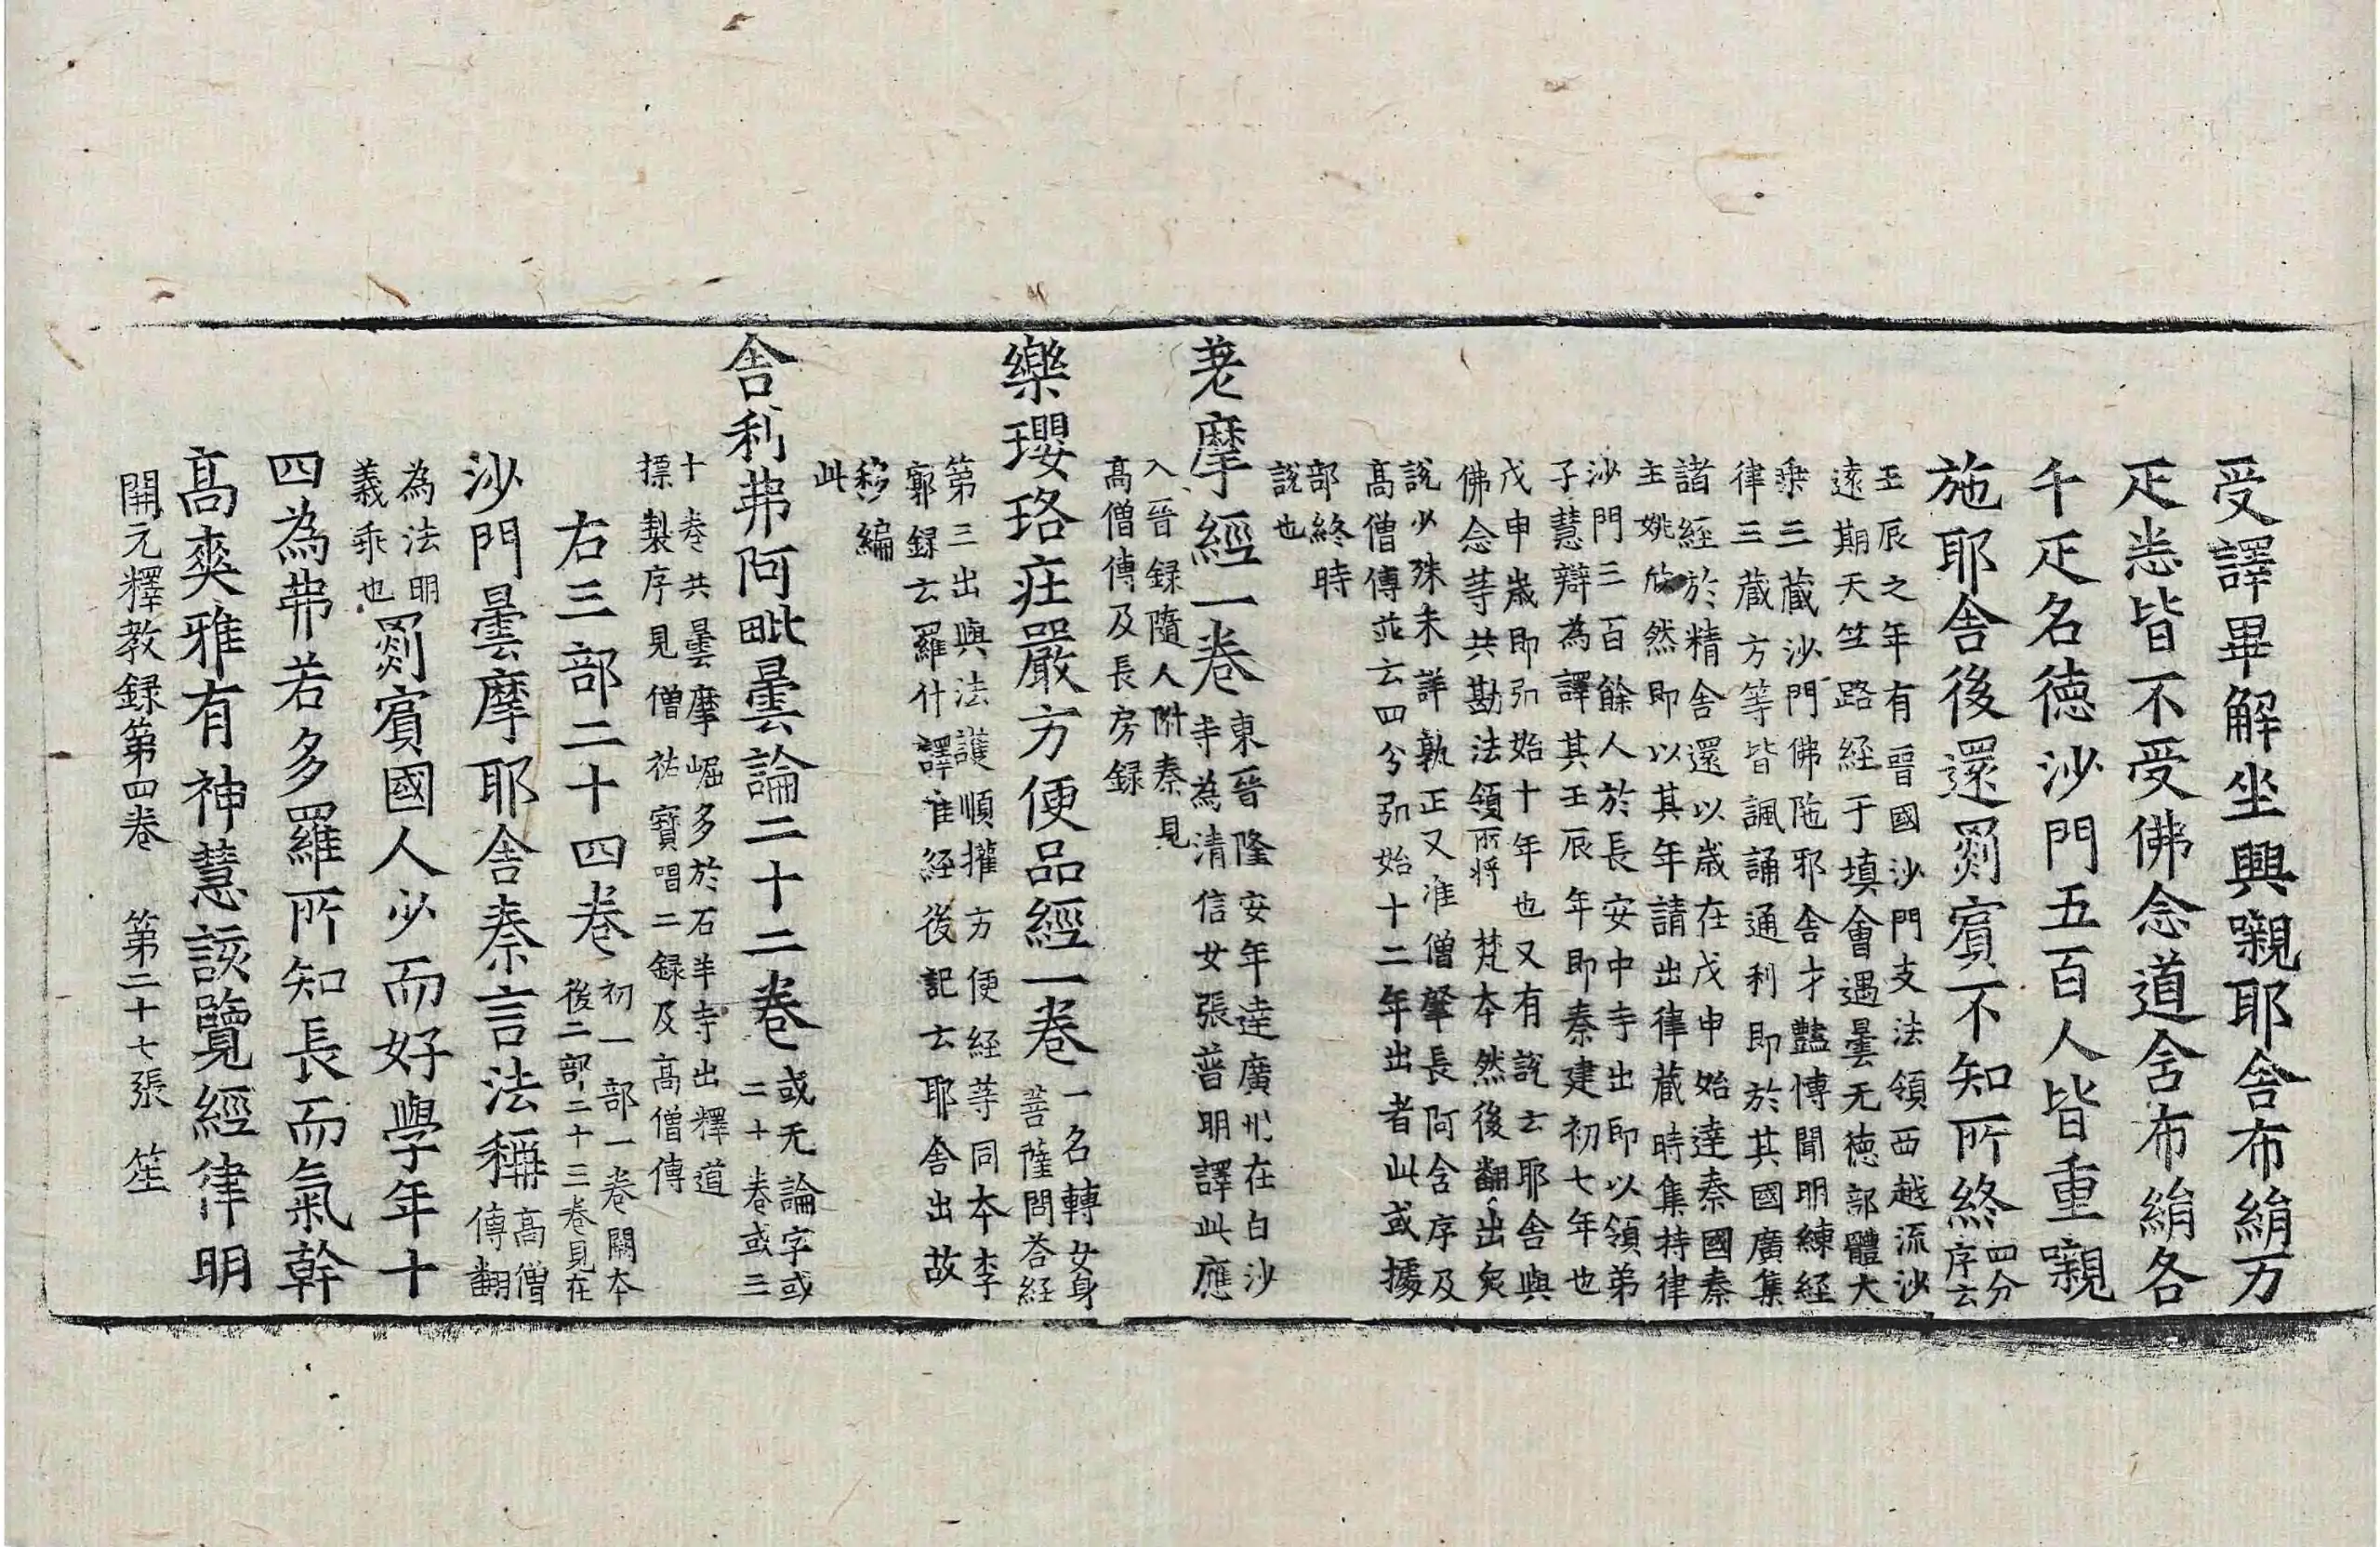 受譯畢解坐興嚫耶舎布絹万
疋悉皆不受佛念道舎布絹各
千疋名德沙門五百人皆重嚫
施耶舎後還罽賓不知所終四分
序云
壬辰之年有晉國沙門支法領西越流沙
遠期天竺路経于填會遇曇无德部體大
乗三蔵沙門佛陁邪舎才豔愽聞明練経
律三蔵方等皆諷誦通利即於其國廣集
諸経於精舎還以歳在戊申始達秦國秦
主姚欣然即以其年請出律蔵時集持律
沙門三百餘人於長安中寺出即以領弟
子慧辯為譯其壬辰年即秦建初七年也
戊申歳即弘始十年也又有說云耶舎與
佛念等共勘法領所將梵夲然後翻出矣
說少殊未詳孰正又准僧肇長阿含序及
高僧傳並云四分弘始十二年出者此或據
部終時
說也
差摩經一卷東晉隆安年達廣州在白沙
寺為清信女張普明譯此應
入晉録隨人附秦見
高僧傳及長房録
樂瓔珞莊嚴方便品經一卷一名轉女身
菩薩問荅経
第三出與法護順攉方便経等同夲李
郭録云羅什譯准経後記云耶舎出故
移編
此
舎利弗阿毗曇論二十二卷或无論字或
二十卷或三
十卷共曇摩崛多於石羊寺出釋道
摽製序見僧祐寳唱二録及高僧傳
右三部二十四卷初一部一卷闕夲
後二部二十三卷見在
沙門曇摩耶舎秦言法稱高僧
傳翻
為法明
義乖也罽賓國人少而好學年十
四為弗若多羅所知長而氣幹
高爽雅有神慧該覽經律明
開元釋教録第四卷　第二十七張　笙